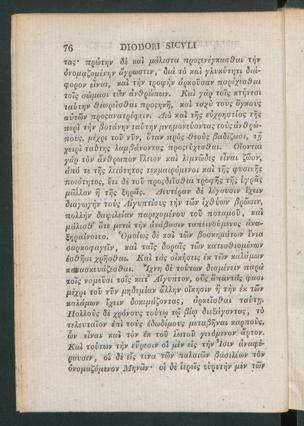 76 DIODORI SICVLI
τας· πρώτην δὲ καὶ μάλιστα προςενέγκασθαι τὴν
ὀνομαζομένην ἄγρωστιν, διὰ τὸ καὶ γλυκύτητι διά-
φορον εἶναι, καὶ τὴν τροφὴν ἀρκοῦσαν παρέχεσθαι
τοῖς σώμασι τῶν ἀνθρώπων. Καὶ γὰρ τοῖς κτήνεσι
ταύτην θεωρεῖσθαι προςηνῆ, καὶ ταχὺ τοὺς ὄγκους
αὐτῶν προςανατρέφειν. Διὸ καὶ τῆς εὐχρηστίας τῆς
περὶ τὴν βοτάνην ταύτην μνημονεύοντας τοὺς ἀνθρώ-
πους, μέχρι τοῦ νῦν, ὅταν πρὸς θεοὺς βαδίζωσι, τῇ
χειρὶ ταύτης λαμβάνοντας προςεύχεσθαι. Οἴονται
γὰρ τὸν ἄνθρωπον ἕλειον καὶ λιμνῶδες εἶναι ζῶον,
ἀπό τε τῆς λειότητος τεκμαιρόμενοι καὶ τῆς φυσικῆς
ποιότητος, ἔτι δὲ τοῦ προςδεῖσθαι τροφῆς τῆς ὑγρᾶς
μᾶλλον ἢ τῆς ξηρᾶς. Δευτέραν δὲ λέγουσιν ἔχειν
διαγωγὴν τοὺς Αἰγυπτίους τὴν τῶν ἰχθύων βρῶσιν,
πολλὴν δαψίλειαν παρεχομένου τοῦ ποταμοῦ, καὶ
μάλισθ᾽ ὅτε μετὰ τὴν ἀνάβασιν ταπεινούμενος ἀνα-
ξηραίνοιτο. Ὁμοίως δὲ καὶ τῶν βοσκημάτων ἔνια
σαρκοφαγεῖν, καὶ ταῖς δοραῖς τῶν κατεσθιομένων
ἐσθῆσι χρῆσθαι. Καὶ τὰς οἰκήσεις ἐκ τῶν καλάμων
κατασκευάζεσθαι. Ἴχνη δὲ τούτων διαμένειν παρὰ
τοῖς νομεῦσι τοῖς κατ᾽ Αἴγυπτον, οὓς ἅπαντάς φασι
μέχρι τοῦ νῦν μηδεμίαν ἄλλην οἴκησιν ἢ τὴν ἐκ τῶν
καλάμων ἔχειν δοκιμάζοντας, ἀρκεῖσθαι ταύτῃ.
Πολλοὺς δὲ χρόνους τούτῳ τῷ βίῳ διεξάγοντας, τὸ
τελευταῖον ἐπὶ τοὺς ἐδωδίμους μεταβῆναι καρποὺς,
ὧν εἶναι καὶ τὸν ἐκ τοῦ λωτοῦ γινόμενον ἄρτον.
Καὶ τούτων τὴν εὕρεσιν οἱ μὲν εἰς τὴν Ἶσιν ἀναφέ-
ρουσιν, οἱ δὲ εἴς τινα τῶν παλαιῶν βασιλέων τὸν
ὀνομαζόμενον Μηνᾶν· οἱ δὲ ἱερεῖς εὑρετὴν μὲν τῶν